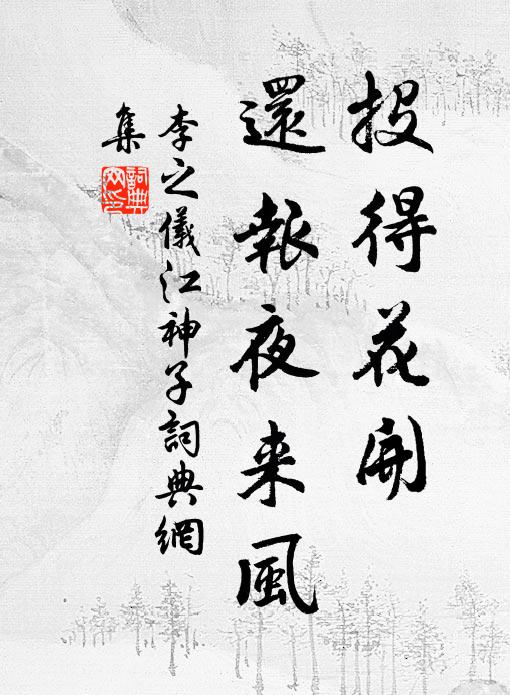 投得花開
還報夜来風
李之儀江神子詞典網
集
詞典網